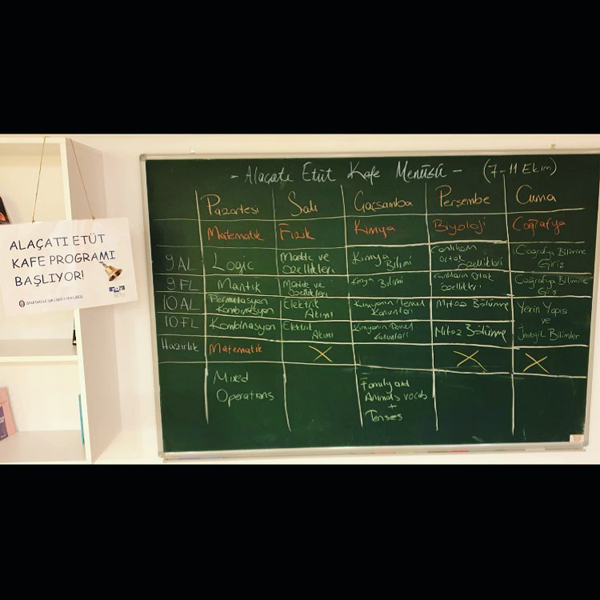 ALAÇATI ETÜT
KAFE PROGRAMI
BAŞLIYOR!
- Alaçatı Etüt Kafe Menüsü - (7-11 Ekim)
Pazartesi Salı Çarşamba Perşembe Cuma
Matematik Fizik Kimya Biyoloji Coğrafya
9 AL Logic Madde ve Özellikleri Kimya Bilimi Canlıların Ortak Özellikleri Coğrafya Bilimine Giriş
9 FL Mantık Madde ve Özellikleri Kimya Bilimi Canlıların Ortak Özellikleri Coğrafya Bilimine Giriş
10 AL Permütasyon Kombinasyon Elektrik Akımı Kimyanın Temel Kanunları Mitoz Bölünme Yerin Yapısı
10 FL Kombinasyon Elektrik Akımı Kimyanın Temel Kanunları Mitoz Bölünme ve Bilimler
Hazırlık Matematik X X X
Mixed
Operations
Family and
Animals vocab
+
Tenses